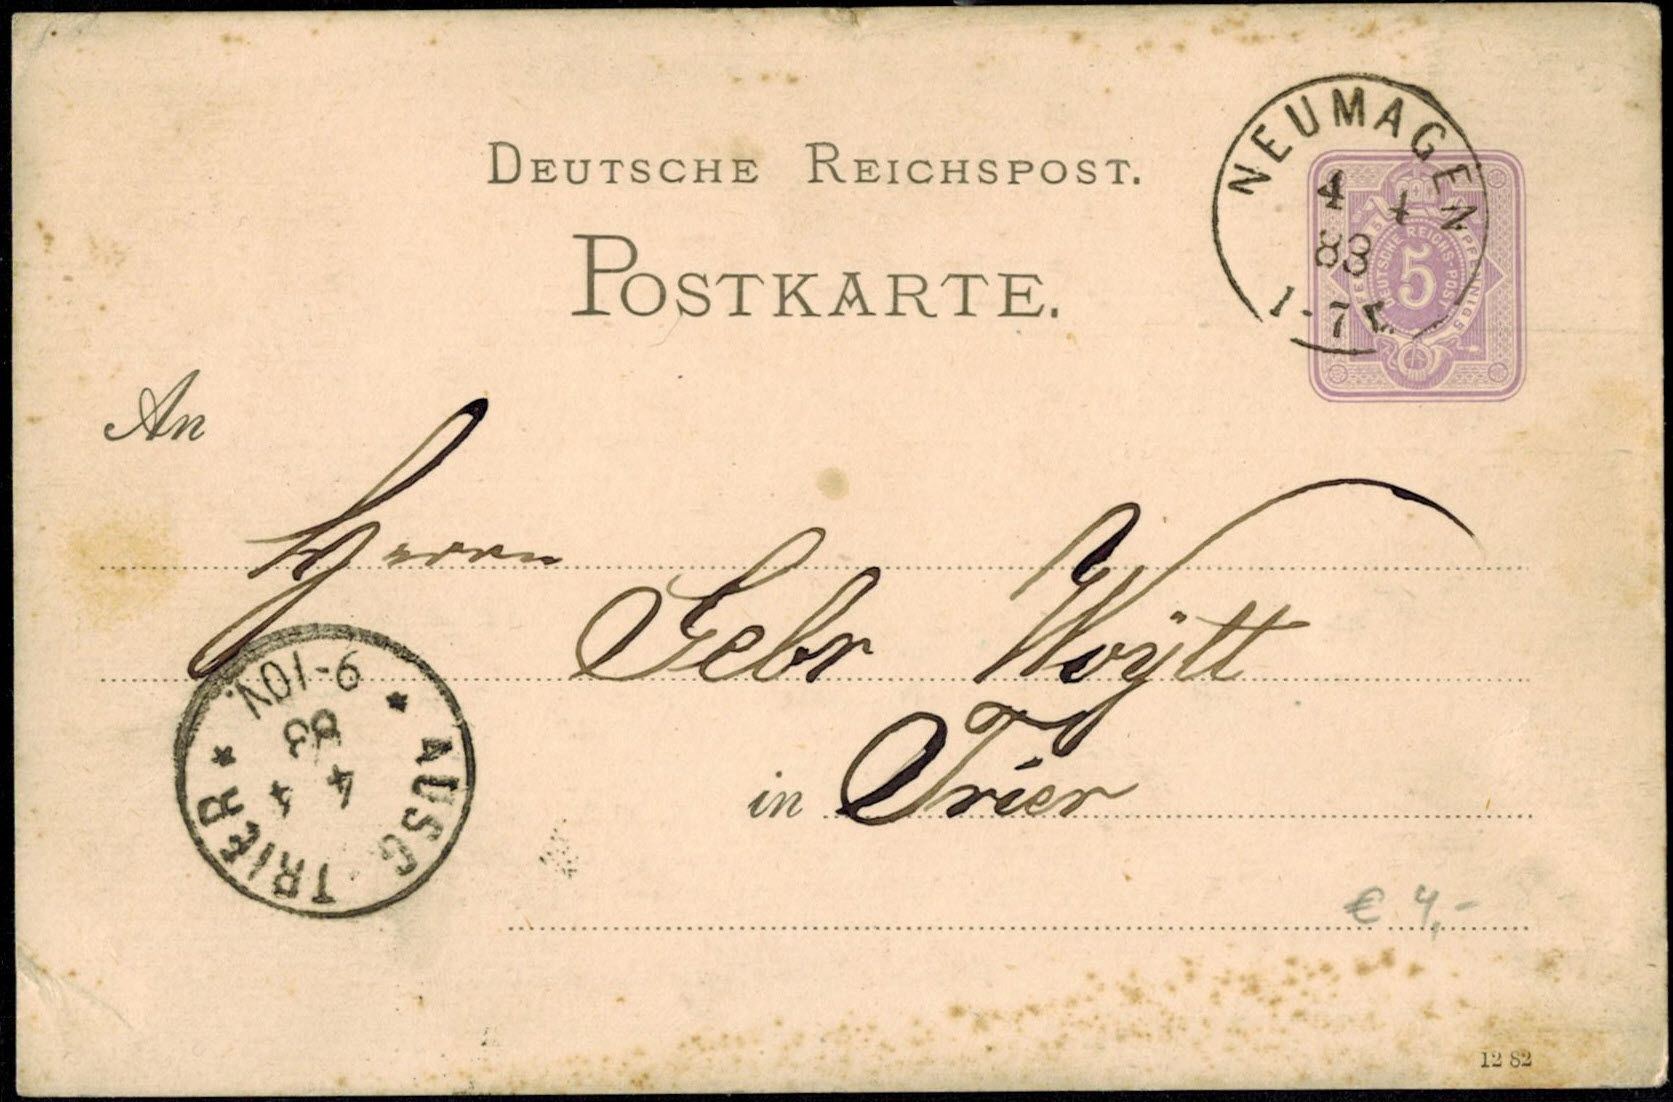 DEUTSCHE REICHSPOST.
POSTKARTE.
NEUMAGEN
4 4
83
1-7
FÜNF PFENNIGE
DEUTSCHE REICHS-POST
5
An
Herrn
Gebr Woÿtt
in Trier
AUSG. TRIER
4 4
83
9-10N.
€ 4,-
12 82